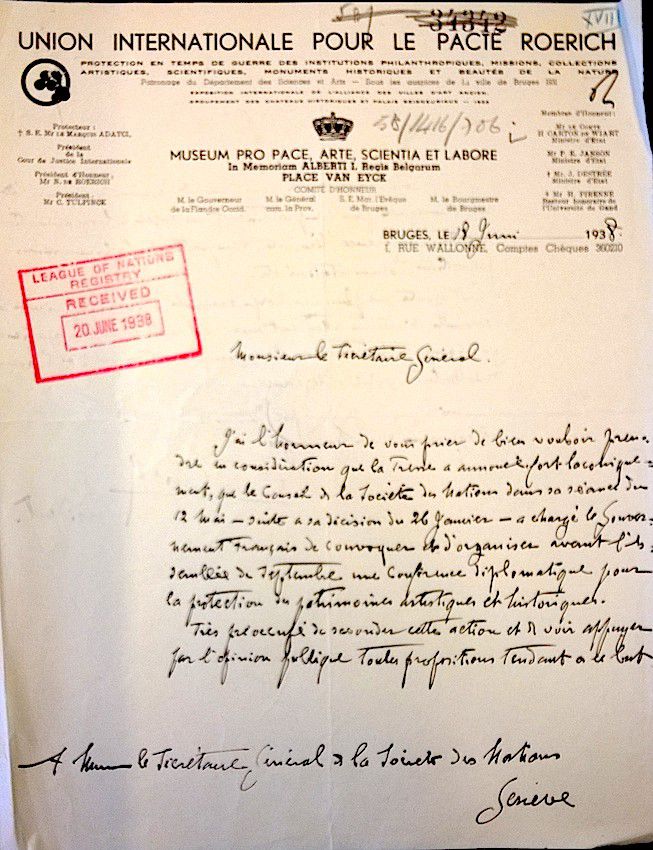 XVII
34342
UNION INTERNATIONALE POUR LE PACTE ROERICH
PROTECTION EN TEMPS DE GUERRE DES INSTITUTIONS PHILANTHROPIQUES, MISSIONS, COLLECTIONS
ARTISTIQUES, SCIENTIFIQUES, MONUMENTS HISTORIQUES ET BEAUTÉS DE LA NATURE
Patronage du Département des Sciences et Arts — Sous les auspices de La ville de Bruges 1931
EXPOSITION INTERNATIONALE DE L'ALLIANCE DES VILLES D'ART ANCIEN,
GROUPEMENT DES CHATEAUX HISTORIQUES ET PALAIS SEIGNEURIAUX — 1932
Protecteur :
† S. E. Mr LE MARQUIS ADATCI,
Président
de la
Cour de Justice Internationale
Président d'Honneur :
Mr N. DE ROERICH
Président :
Mr C. TULPINCK
MUSEUM PRO PACE, ARTE, SCIENTIA ET LABORE
In Memoriam ALBERTI I, Regis Belgarum
PLACE VAN EYCK
COMITÉ D'HONNEUR
M. le Gouverneur
de la Flandre Occid.
M. le Général
com. la Prov.
S. E. Mgr. l'Evêque
de Bruges
M. le Bourgmestre
de Bruges
Membres d'Honneur :
Mr LE COMTE
H CARTON DE WIART
Ministre d'Etat
Mr P. E. JANSON
Ministre d'Etat
† Mr J. DESTRÉE
Ministre d'Etat
† Mr H. PIRENNE
Recteur honoraire de
l'Université de Gand
BRUGES, LE 18 Juin 1938.
1, RUE WALLONNE, Comptes Chèques 360210
LEAGUE OF NATIONS
REGISTRY
RECEIVED
20 JUNE 1938
Monsieur le Secrétaire Général.
J'ai l'honneur de vous prier de bien vouloir pren-
dre en considération que la Presse a annoncé fort laconique-
ment, que le Conseil de la Société des Nations dans sa séance du
12 Mai — suite a sa décision du 26 Janvier — a chargé le Gouver-
nement Français de convoquer et d'organiser avant l'As-
semblée de Septembre une Conférence diplomatique pour
la protection des patrimoines artistiques et historiques.
Très préoccupé de seconder cette action et de voir appuyer
par l'opinion publique toutes propositions tendant a ce but
A le Secrétaire Général de la Société des Nations
Genève